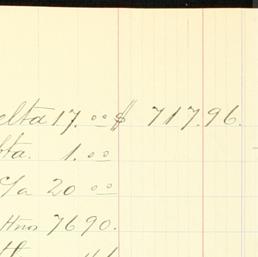 elta 17.00 $ 717.96.
ta. 1.00
c/a 20 00
Hnos 76 90.